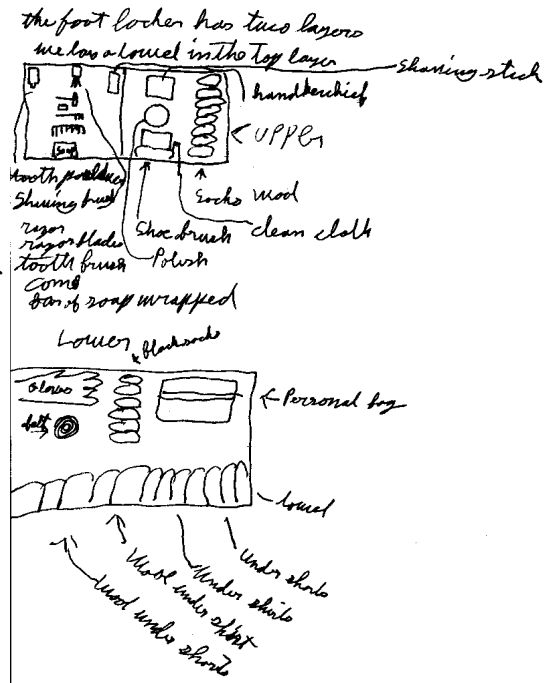 the foot locker has two layers
we lay a towel in the top layer
Shaving stick
handkerchief
UPPER
Soap
tooth powder
Shaving brush
razor
razor blades
tooth brush
comb
bar of soap wrapped
Shoe brush
Polish
Socks wool
clean cloth
Lower
black socks
gloves
belt
Personal bag
towel
Under shorts
Under shirts
Wool under shirt
Wool under shorts